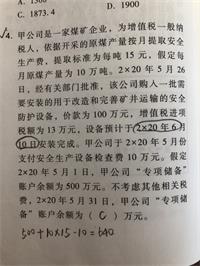 C. 1873.4 D. 1900
√4. 甲公司是一家煤矿企业，为增值税一般纳
税人，依据开采的原煤产量按月提取安全
生产费，提取标准为每吨 15 元，假定每
月原煤产量为 10 万吨。2×20 年 5 月 26
日，经有关部门批准，该公司购入一批需
要安装的用于改造和完善矿井运输的安全
防护设备，价款为 100 万元，增值税进项
税额为 13 万元，设备预计于 2×20 年 6 月
10 日安装完成。甲公司于 2×20 年 5 月份
支付安全生产设备检查费 10 万元。假定
2×20 年 5 月 1 日，甲公司“专项储备”
账户余额为 500 万元。不考虑其他相关税
费，2×20 年 5 月 31 日，甲公司“专项储
备”账户余额为（ C ）万元。
500+10×15-10=640